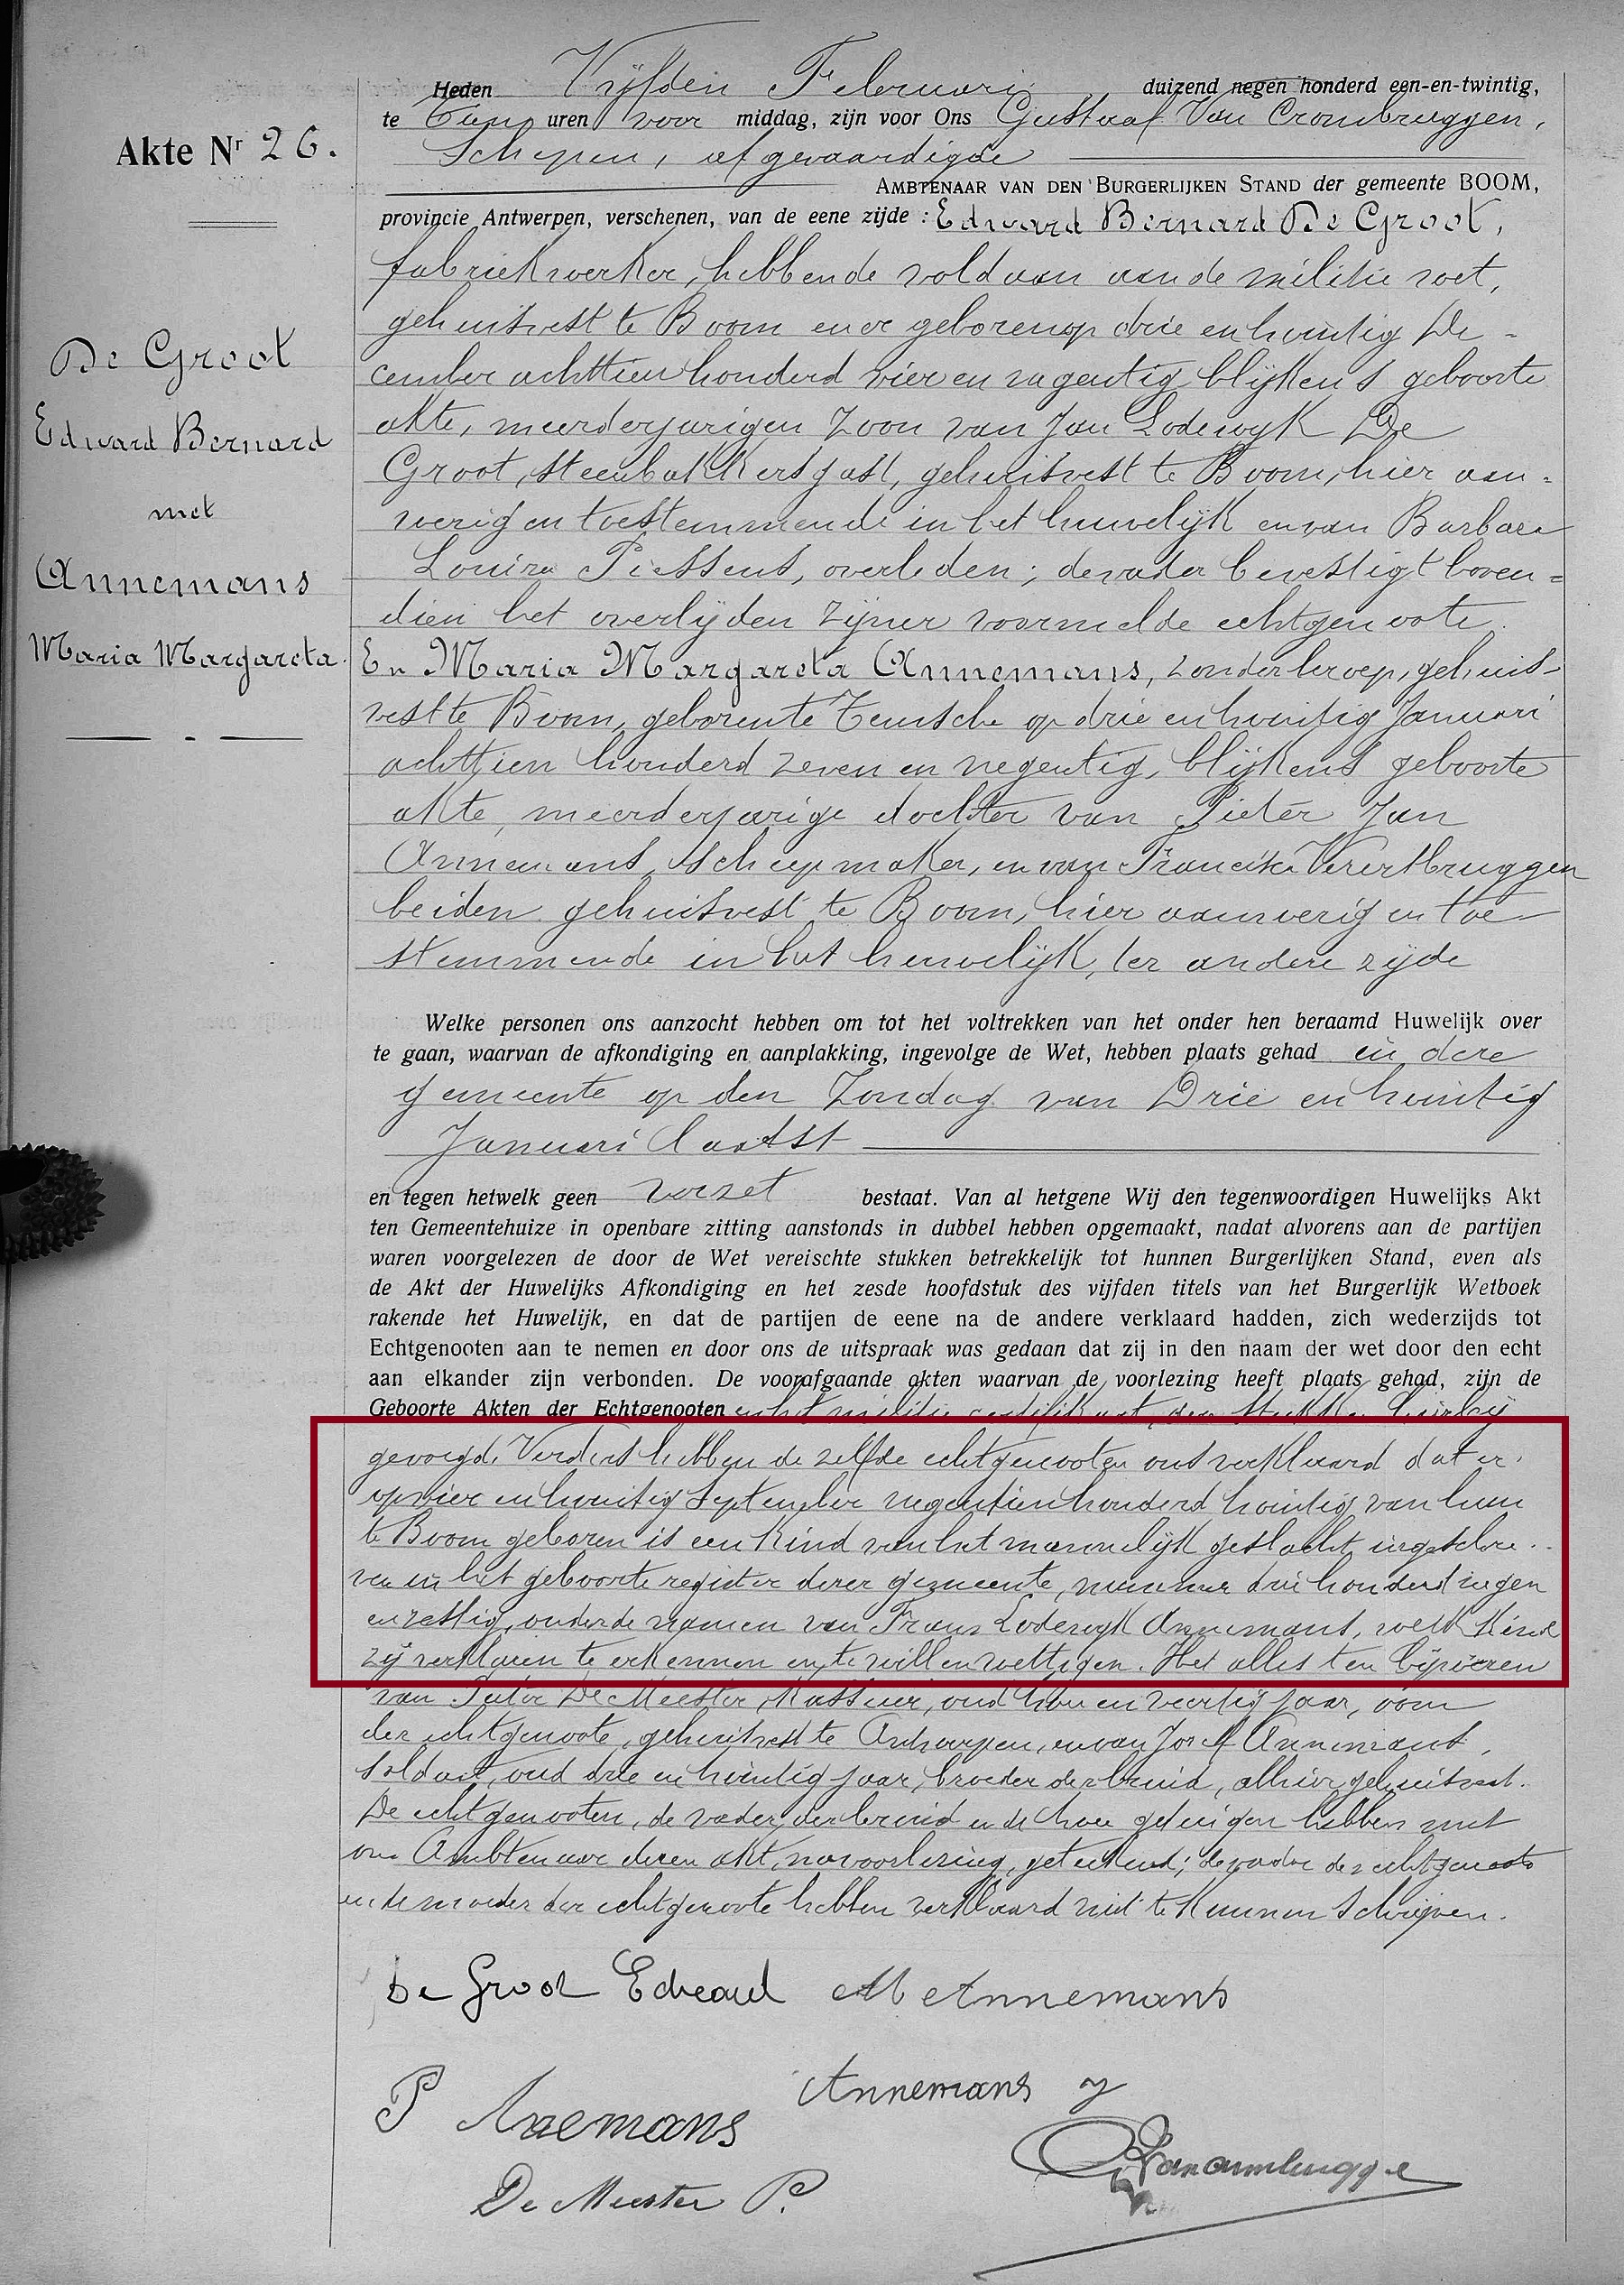 Heden Vijfden Februari duizend negen honderd een-en-twintig,
te Tien uren voor middag, zijn voor Ons Gustaaf Van Crombruggen,
Schepen, afgevaardigde
AMBTENAAR VAN DEN BURGERLIJKEN STAND der gemeente BOOM,
provincie Antwerpen, verschenen, van de eene zijde : Edward Bernard De Groot,
fabriekwerker, hebbende voldaan aan de militie wet,
gehuisvest te Boom en er geboren op drie en twintig De-
cember achttien honderd vier en negentig blijkens geboorte
akte, meerderjarigen zoon van Jan Lodewijk De
Groot, steenbakkersgast, gehuisvest te Boom, hier aan-
wezig en toestemmende in het huwelijk en van Barbara
Louiza Piessens, overleden; de vader bevestigt boven=
dien het overlijden zijner voormelde echtgenoote.
En Maria Margareta Annemans, zonder beroep, gehuis-
vest te Boom, geboren te Temsche op drie en twintig Januari
achttien honderd zeven en negentig, blijkens geboorte
akte, meerderjarige dochter van Pieter Jan
Annemans, scheepmaker, en van Francisca Verertbruggen
beiden gehuisvest te Boom, hier aanwezig en toe-
stemmende in het huwelijk, ter andere zijde
Akte Nr 26.
De Groot
Edward Bernard
met
Annemans
Maria Margareta.
Welke personen ons aanzocht hebben om tot het voltrekken van het onder hen beraamd Huwelijk over
te gaan, waarvan de afkondiging en aanplakking, ingevolge de Wet, hebben plaats gehad in deze
gemeente op den Zondag van Drie en twintig
Januari laatst
en tegen hetwelk geen verzet bestaat. Van al hetgene Wij den tegenwoordigen Huwelijks Akt
ten Gemeentehuize in openbare zitting aanstonds in dubbel hebben opgemaakt, nadat alvorens aan de partijen
waren voorgelezen de door de Wet vereischte stukken betrekkelijk tot hunnen Burgerlijken Stand, even als
de Akt der Huwelijks Afkondiging en het zesde hoofdstuk des vijfden titels van het Burgerlijk Wetboek
rakende het Huwelijk, en dat de partijen de eene na de andere verklaard hadden, zich wederzijds tot
Echtgenooten aan te nemen en door ons de uitspraak was gedaan dat zij in den naam der wet door den echt
aan elkander zijn verbonden. De voorafgaande akten waarvan de voorlezing heeft plaats gehad, zijn de
Geboorte Akten der Echtgenooten en het militie certifikaat, den stukken hierbij
gevoegd. Verders hebben de zelfde echtgenooten ons verklaard dat er
op vier en twintig September negentien honderd twintig van hun
te Boom geboren is een Kind van het mannelijk geslacht ingeschre-
ven in het geboorte register dezer gemeente, nummer drie honderd negen
en zestig, onder de namen van Frans Lodewijk Annemans, welk Kind
zij verklaren te erkennen en te willen wettigen. Het alles ten bijwezen
van Pieter De Meester, Kassier, oud twee en veertig jaar, oom
der echtgenoote, gehuisvest te Antwerpen, en van Josef Annemans,
soldaat, oud drie en twintig jaar, broeder der bruid, alhier gehuisvest.
De echtgenooten, de vader der bruid en de twee getuigen hebben met
ons Ambtenaar dezen akt, na voorlezing, geteekend; de vader des echtgenoots
en de moeder der echtgenoote hebben verklaard niet te kunnen schrijven.
De Groot Edward M Annemans
P Annemans Annemans J
De Meester P. G Van Crombruggen